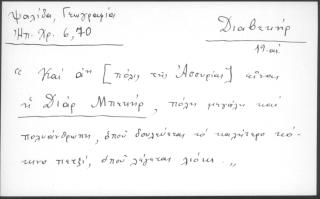 Ψαλίδα, Γεωγραφία
Ἠπ. Χρ. 6, 70
Διαβεκήρ
19 αἰ
“ Καὶ ἀπ [πόλις τῆς Ἀσσυρίας] εἶναι
ἡ Διάρ Μπεκήρ, πόλη μεγάλη καὶ
πολυάνθρωπη, ὁποῦ δουλεύεται τὸ καλήτερο κόκ-
κινο πετζί, ὁποῦ λέγεται